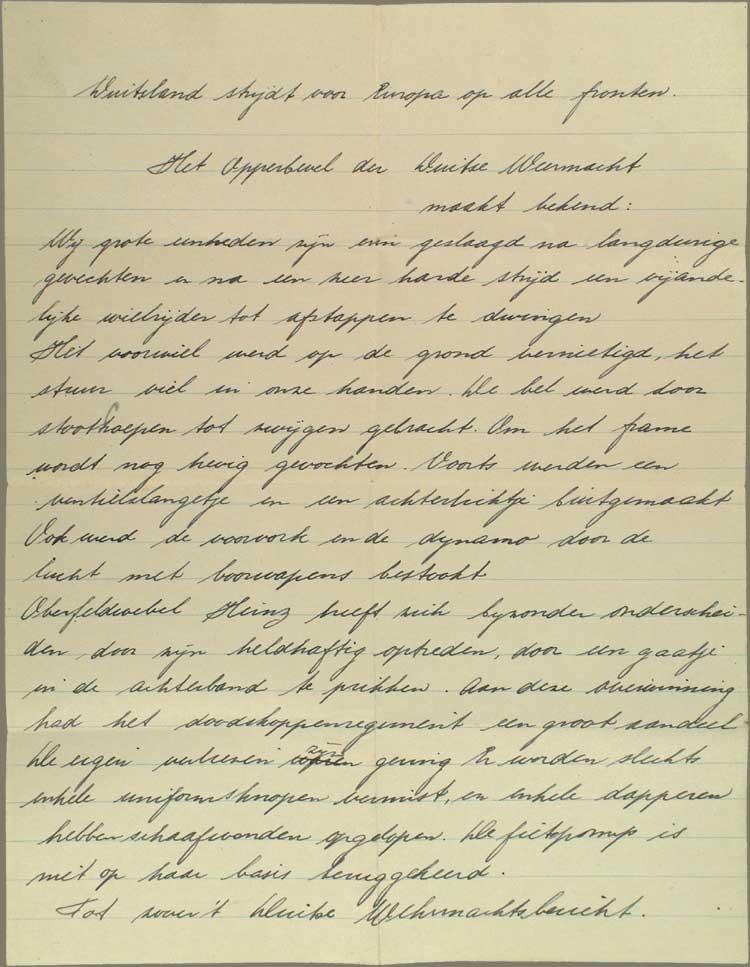 Duitsland strijdt voor Europa op alle fronten.
Het Opperbevel der Duitse Weermacht
maakt bekend:
Wij grote eenheden zijn erin geslaagd na langdurige
gevechten en na een zeer harde strijd een vijande-
lijke wielrijder tot afstappen te dwingen
Het voorwiel werd op de grond vernietigd, het
stuur viel in onze handen. De bel werd door
stoottroepen tot zwijgen gebracht. Om het frame
wordt nog hevig gevochten. Voorts werden een
ventielslangetje en een achterlichtje buitgemaakt
Ook werd de voorvork en de dynamo door de
lucht met boordwapens bestookt
Oberfeldwebel Heinz heeft zich byzonder onderschei-
den door zijn heldhaftig optreden, door een gaatje
in de achterband te prikken. Aan deze overwinning
had het doodskoppenregiment een groot aandeel
De eigen verliezen zijn gering Er worden slechts
enkele uniformsknopen vermist, en enkele dapperen
hebben schaafwonden opgelopen. De fietspomp is
niet op haar basis teruggekeerd.
Tot zover 't Duitse Wehrmachtsbericht.